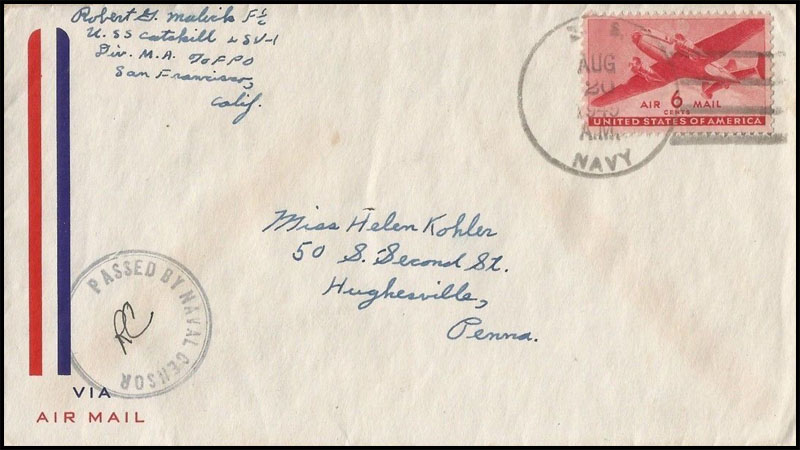 Robert G. Malick F 1/c
U.S.S Catskill LSV-1
Div. M.A. % FPO
San Francisco,
Calif.
AUG
20
1945
A.M.
NAVY
AIR 6 MAIL
CENTS
UNITED STATES OF AMERICA
Miss Helen Kohler
50 S. Second St.
Hughesville,
Penna.
PASSED BY NAVAL CENSOR
RC
VIA
AIR MAIL